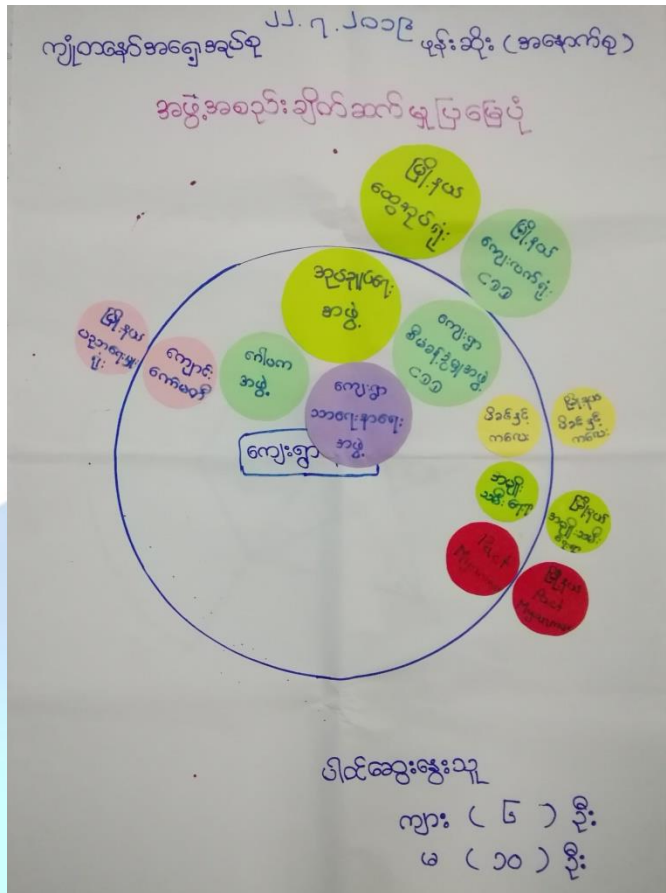 ၂၂.၇.၂၀၁၉
ကျုံတနော်အရှေ့အုပ်စု
ဖုန်းဆိုး (အနောက်စု)
အဖွဲ့အစည်းချိတ်ဆက်မှုပြမြေပုံ
မြို့နယ်
ထွေအုပ်ရုံး
မြို့နယ်
ကျေးလက်ရုံး
CDD
အုပ်ချုပ်ရေး
အဖွဲ့
ကျေးရွာ
စီမံခန့်ခွဲမှုအဖွဲ့
CDD
မြို့နယ်
ပညာရေးမှူး
ရုံး
ကျောင်း
ကော်မတီ
ဂေါပက
အဖွဲ့
ကျေးရွာ
သာရေးနာရေး
အဖွဲ့
ကျေးရွာ
မိခင်နှင့်
ကလေး
မြို့နယ်
မိခင်နှင့်
ကလေး
အမျိုး
သမီးရေးရာ
မြို့နယ်
အမျိုးသမီး
ရေးရာ
Pact
Myanmar
မြို့နယ်
Pact
Myanmar
ပါဝင်ဆွေးနွေးသူ
ကျား ( ၆ ) ဦး
မ ( ၁၀ ) ဦး